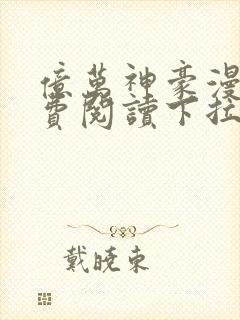 億萬神豪漫
費閱讀下拉
戴曉東